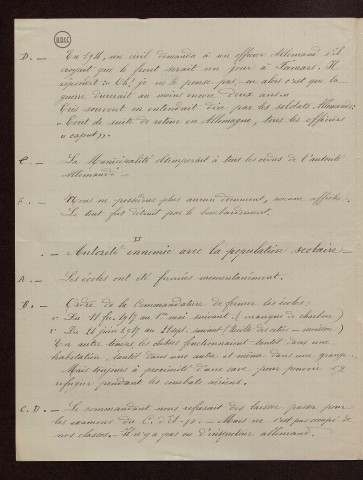 BDIC
D. — En 1914, un civil demanda à un officier Allemand s'il
croyait que le front serait un jour à Famars. Il
répondit « Oh! je ne le pense pas — ou alors c'est que la
guerre durerait au moins encore deux ans. »
Très souvent on entendait dire par les soldats Allemands:
« Tout de suite de retour en Allemagne, tous les officiers
« caput ».
E. — La Municipalité obtempérait à tous les ordres de l'autorité
Allemande.
F. — Nous ne possédons plus aucun document, aucune affiche.
Le tout fut détruit par le bombardement.
II
— Autorité ennemie avec la population scolaire —
A. — Les écoles ont été fermées momentanément.
B. — Ordre de la Commandature de fermer les écoles:
1° Du 11 fév. 1917 au 1er mai suivant: (manque de charbon)
2° Du 21 juin 1917 au 21 sept. suivant: (moisson)
En autre temps, les classes fonctionnaient tantôt dans une
habitation, tantôt dans une autre et même dans une grange.
Mais toujours à proximité d'une cave pour pouvoir s'y
réfugier pendant les combats aériens.
C. D. — Le commandant nous refusait des laisser-passer pour
les examens du C. d'Et. p. — Mais ne s'est pas occupé de
nos classes. — Il n'y a pas eu d'inspecteur allemand.